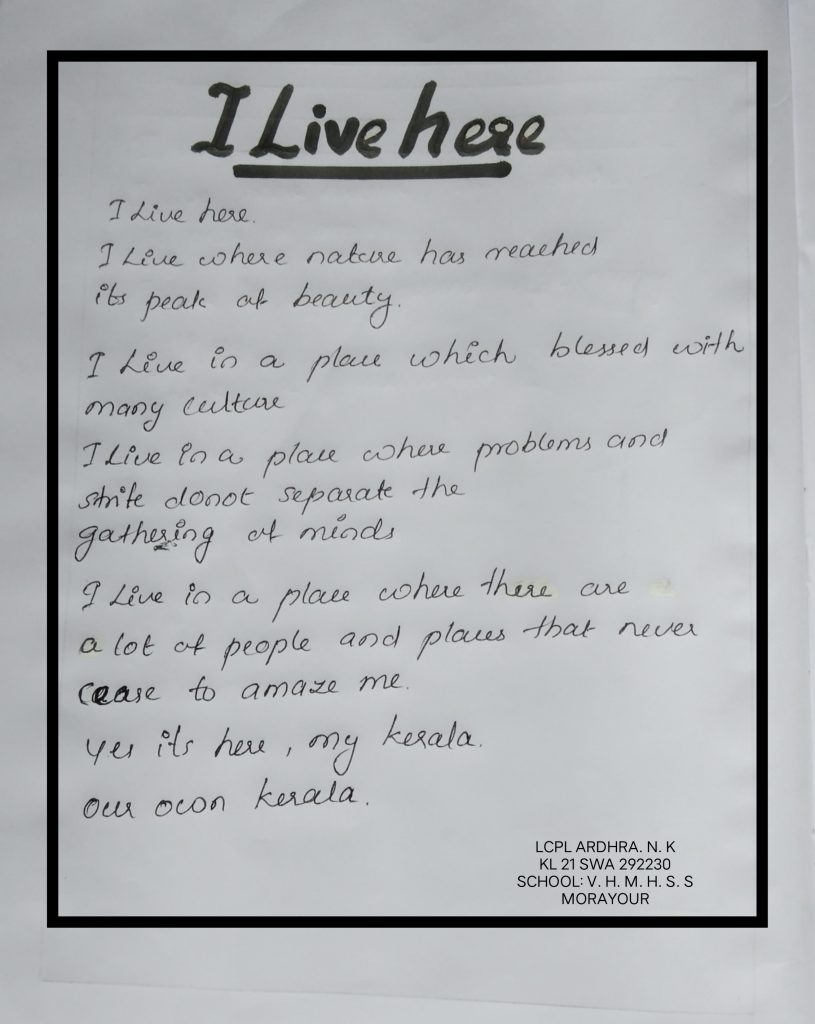 I Live here
I Live here.
I Live where nature has reached
its peak of beauty.
I Live in a place which blessed with
many culture
I Live in a place where problems and
strife donot separate the
gathering of minds
I Live in a place where there are
a lot of people and places that never
cease to amaze me.
Yes its here, my kerala.
Our own kerala.
LCPL ARDHRA. N. K
KL 21 SWA 292230
SCHOOL: V. H. M. H. S. S
MORAYOUR